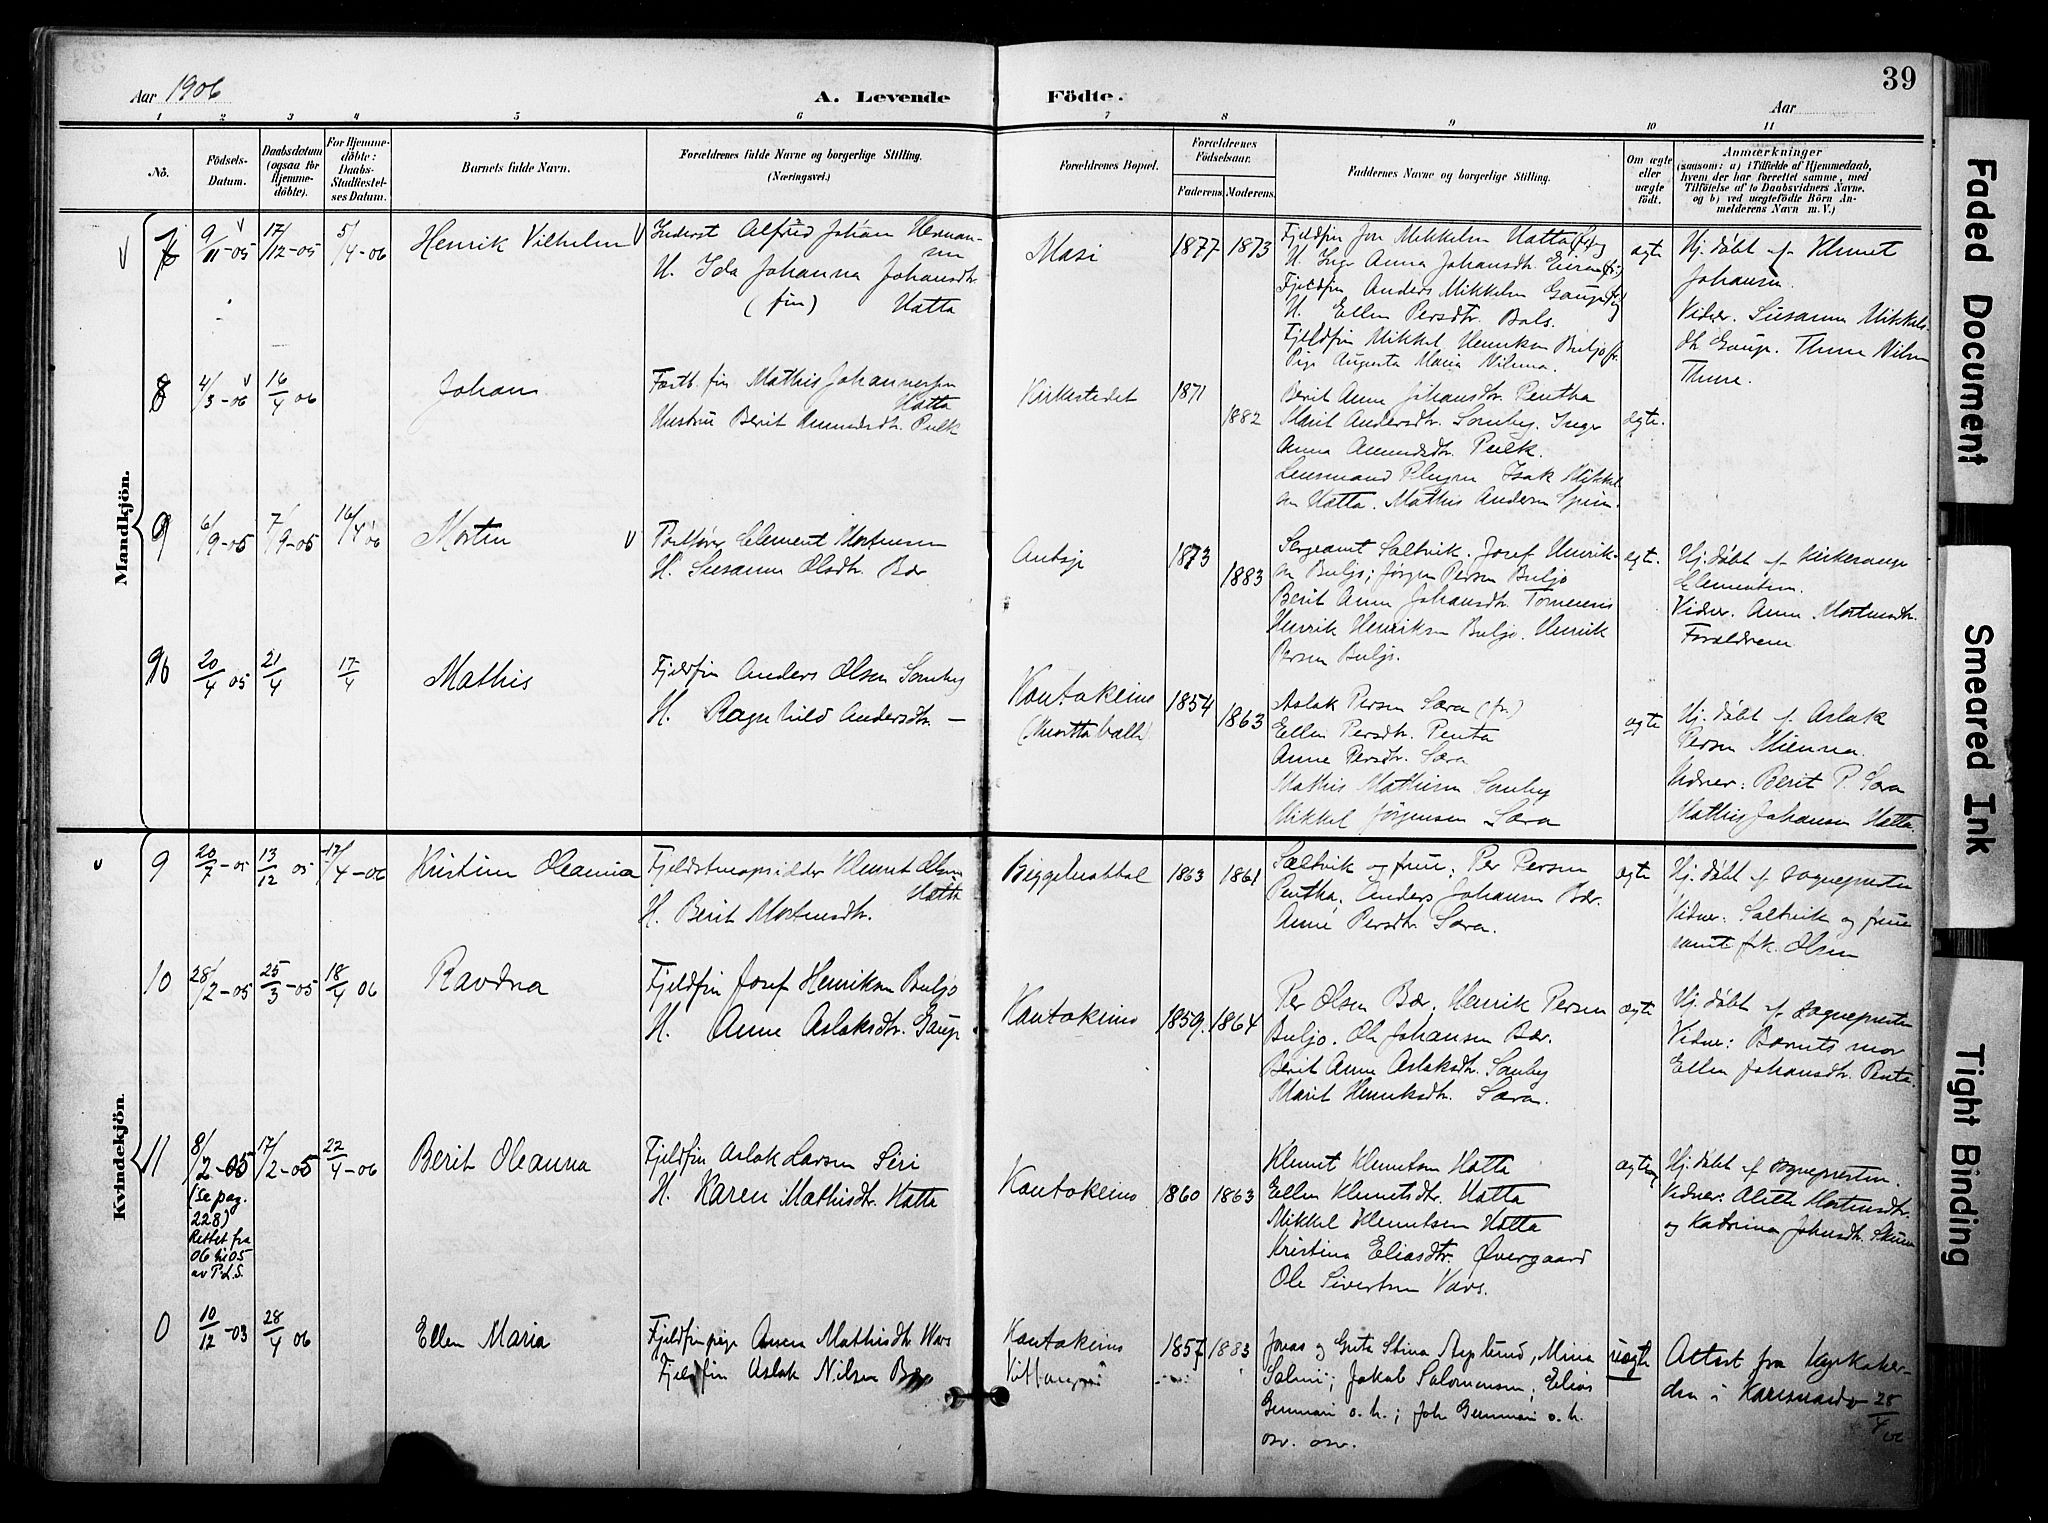 39
Aar 1906
A. Levende Födte.
Aar
1 2 3 4 5 6 7 8 9 10 11
No.
Födsels-Datum.
Daabsdatum (ogsaa for Hjemmedöbte).
For Hjemmedöbte: Daabs-Stadfæstelses Datum.
Barnets fulde Navn.
Forældrenes fulde Navne og borgerlige Stilling. (Næringsvei.)
Forældrenes Bopæl.
Forældrenes Födselsaar.
Faderens. Moderens.
Faddernes Navne og borgerlige Stilling.
Om ægte eller uægte födt.
Anmærkninger
(saasom: a) i Tilfælde af Hjemmedaab, hvem der har forrettet samme, med Tilföielse af to Daabsvidners Navne, og b) ved uægtefödte Börn Anmelderens Navn m. V.)
Mandkjön.
7
9/11-05
17/12-05
5/4-06
Henrik Vilhelm
Inderst Alfred Johan Herman-
sen
H. Ida Johanna Johansdtr
(fin) Hatta
Masi
1877 1873
Fjeldfin Jon Mikkelsen Hatta (fr) og
H. Inga Anna Johansdtr. Eira (fr.)
Fjeldfin Anders Mikkelsen Gaup (fr) og
H. Ellen Persdtr. Bals.
Fjeldfin Mikkel Henriksen Buljo (fr.
Pige Augusta Maria Nilsena.
ægte
Hj. döbt af Klemet
Johansen.
Vidner. Susanna Mikkels-
dtr Gaup. Thure Nilsen
Thure.
8
4/3-06
16/4 06
Johan
Fastb. fin Mathis Johannesen
Hatta
Hustru Berit Amundsdtr. Pulk
Kirkestedet
1871
1882
Berit Anne Johansdtr. Pentha
Marit Andersdtr. Somby. Inger
Anna Amundsdtr. Pulk.
Lensmand Isak Mikkel-
sen Hatta. Mathis Andersen
ægte.
9
6/9-05
7/9-05
16/4 06
Morten
Postförer Clement Mortensen
H. Susanna Olsdtr. Bær
Autsje
1873
1883
Sergeant Saltvik. Josef Henrik-
sen Buljo; Jörgen Persen Buljo
Berit Anne Johansdtr. Tornensis
Henrik Henriksen Buljo. Henrik
Persen Buljo.
ægte.
Hj. döbt af Kirkesanger
Clementsen.
Vidner. Anne Mortensdtr.
Forældrene.
10
20/4 05
21/4
17/4
Mathis
Fjeldfin Anders Olsen Somby
H. Ragnhild Andersdtr. —
Kautokeino
1854
1863
Aslak Persen Sara (fr.)
Ellen Persdtr. Penta
Anne Persdtr. Sara
Mathis Mathisen Somby
Mikkel Jörgensen Sara
ægte
Hj. döbt af Aslak
Persen Mienna.
Vidner: Berit P. Sara
Mathis Johansen Hatta.
Kvindekjön.
9
20/7-05
13/12 05
17/4-06
Kristine Oleanna
Fjeldstueopsidder Klemet Olsen
Hatta
H. Berit Mortensdtr.
1863 1861
Saltvik og frue; Per Persen
Pentha. Anders Johansen Bær.
Anne Persdtr. Sara.
ægte
Hj. döbt af sognepresten
Vidner: Saltvik og frue
samt frk. Olsen
10
28/2-05
25/3-05
18/4 06
Ravdna
Fjeldfin Josef Henriksen Buljo
H. Anne Aslaksdtr. Gaup
Kautokeino
1859. 1864
Per Olsen Bær. Henrik Persen
Buljo. Ole Johansen Bær.
Berit Anne Aslaksdtr. Somby
Marit Henriksdtr. Sara.
ægte
Hj. döbt af sognepresten
Vidner: Barnets mor
Ellen Johansdtr. Penta.
11
8/2-05
(se pag.
228)
Rettet fra
06 til 05
av P.L.S.
17/2-05
22/4-06
Berit Oleanna
Fjeldfin Aslak Larsen Siri
H. Karen Mathisdtr. Hatta
Kautokeino
1860 1863
Klemet Klemetsen Hatta
Ellen Klemetsdtr. Hatta
Mikkel Klemetsen Hatta
Kristina Eliasdtr. Övergaard
Ole Sivertsen Vars.
ægte
Hj. döbt af sognepresten.
Vidner: Aleth Mortensdtr.
og Katrina Johnsdtr. Skum
0
10/12-03
28/4 06
Ellen Maria
Fjeldfinpige Anna Mathisdtr Wars
Fjeldfin Aslak Nilsen
Kautokeino
Vittangi
1857 1883
Jonas og Greta Stina Asplund, Mina
Salmi; Jakob Salomonsen; Elias
Gunnari o. h.; Joh Gunnari o. h.
osv. osv.
uægte
Attest fra Kyrkoher-
den i Karesuando 28/4 06
Faded Document
Smeared Ink
Tight Binding